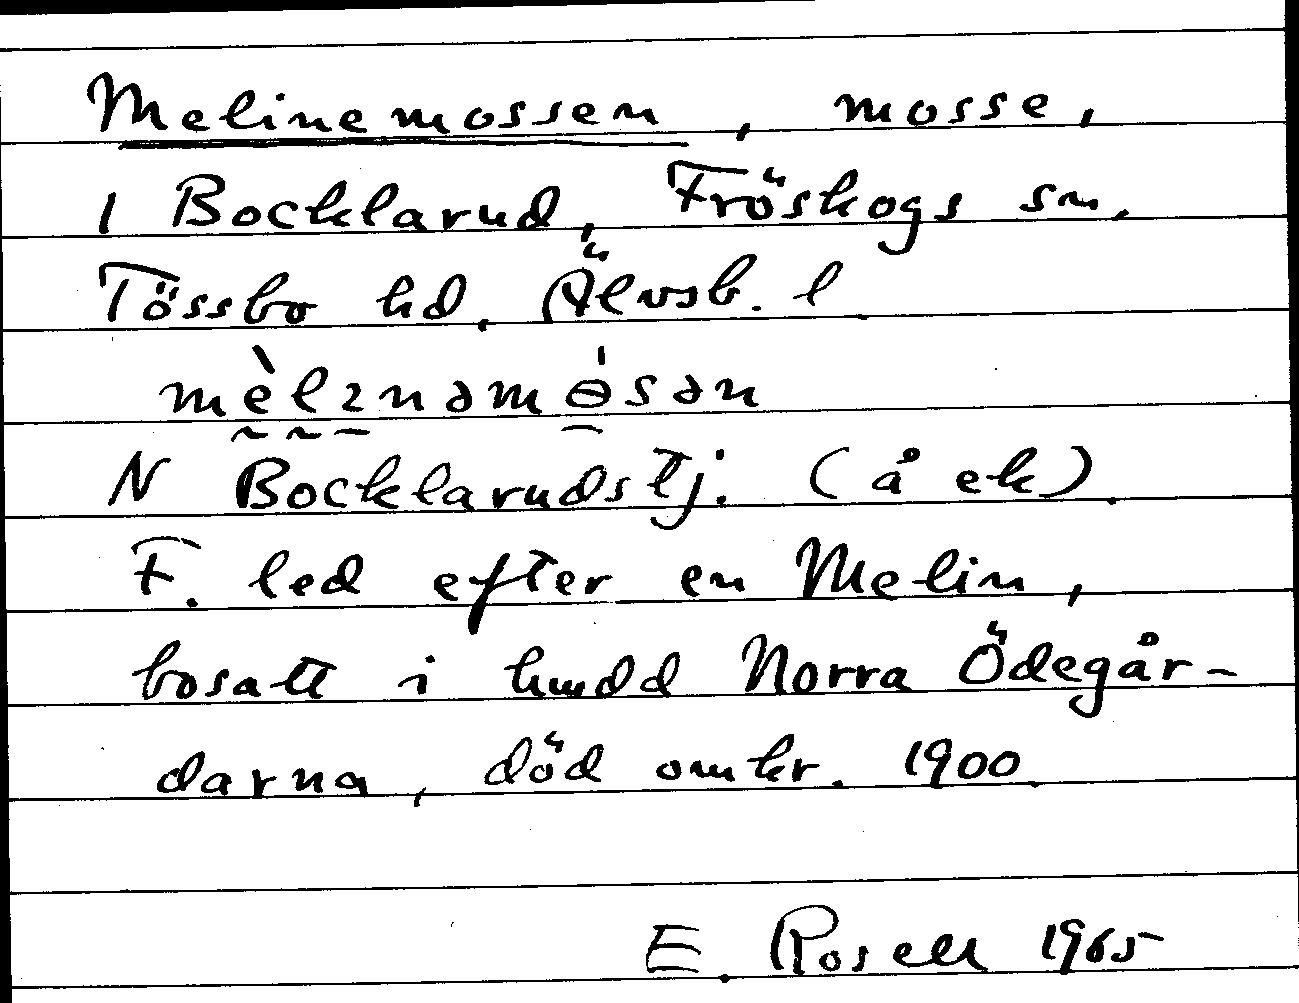 Melinemossen, mosse,
i Bocklarud, Fröskogs sn,
Tössbo hd, Älvsb. l.
mèlɩnəmɵ̀sən
N Bocklarudstj. (å ek).
F. led efter en Melin,
bosatt i hmdd Norra Ödegår-
darna, död omkr. 1900.
E. Rosell 1965